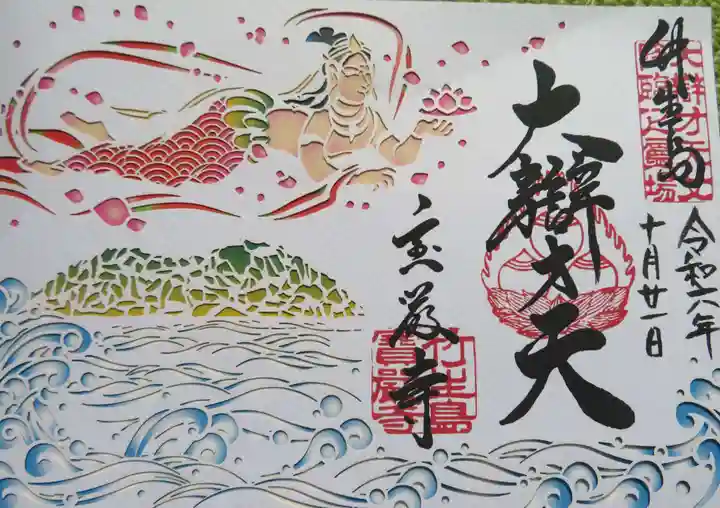 竹生島
大辯才天
令和六年
十月廿一日
宝厳寺
竹生島
寶嚴寺